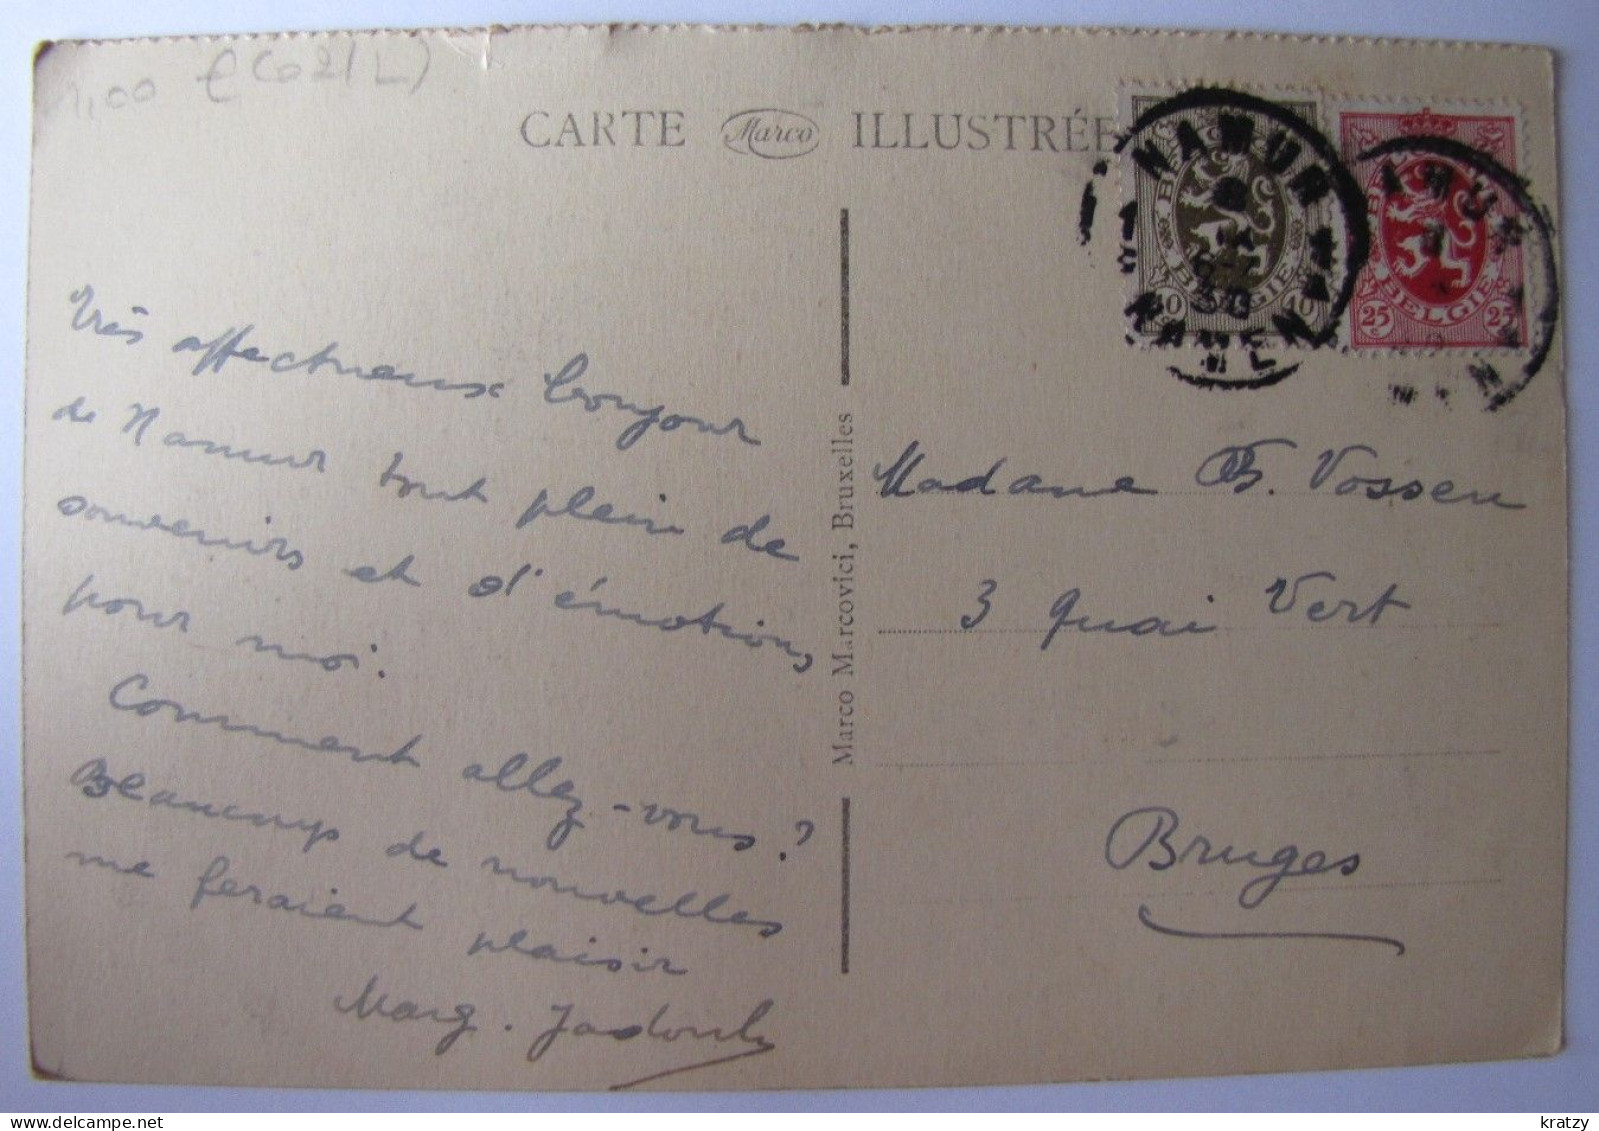 1,00 € (02/L)
CARTE Marco ILLUSTRÉE
NAMUR
NAMEN
BELGIE
10 10
BELGIE
25 25
Très affectueux bonjour
de Namur tout plein de
souvenirs et d'émotions
pour moi.
Comment allez-vous?
Beaucoup de nouvelles
me feraient plaisir
Marg. Jadoul
Marco Marcovici, Bruxelles
Madame Vossen
3 Quai Vert
Bruges
kratzy